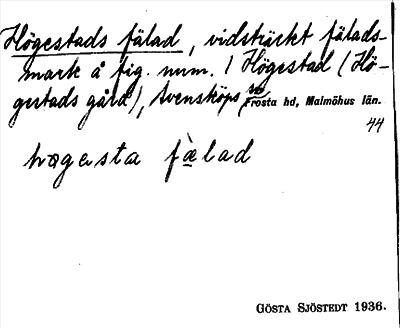 Högestads fälad, vidsträckt fälads-
mark å fig. num. 1 Högestad (Hö-
gestads gård), Svensköps sn
Frosta hd, Malmöhus län.
44
høgesta fὲlad
GÖSTA SJÖSTEDT 1936.